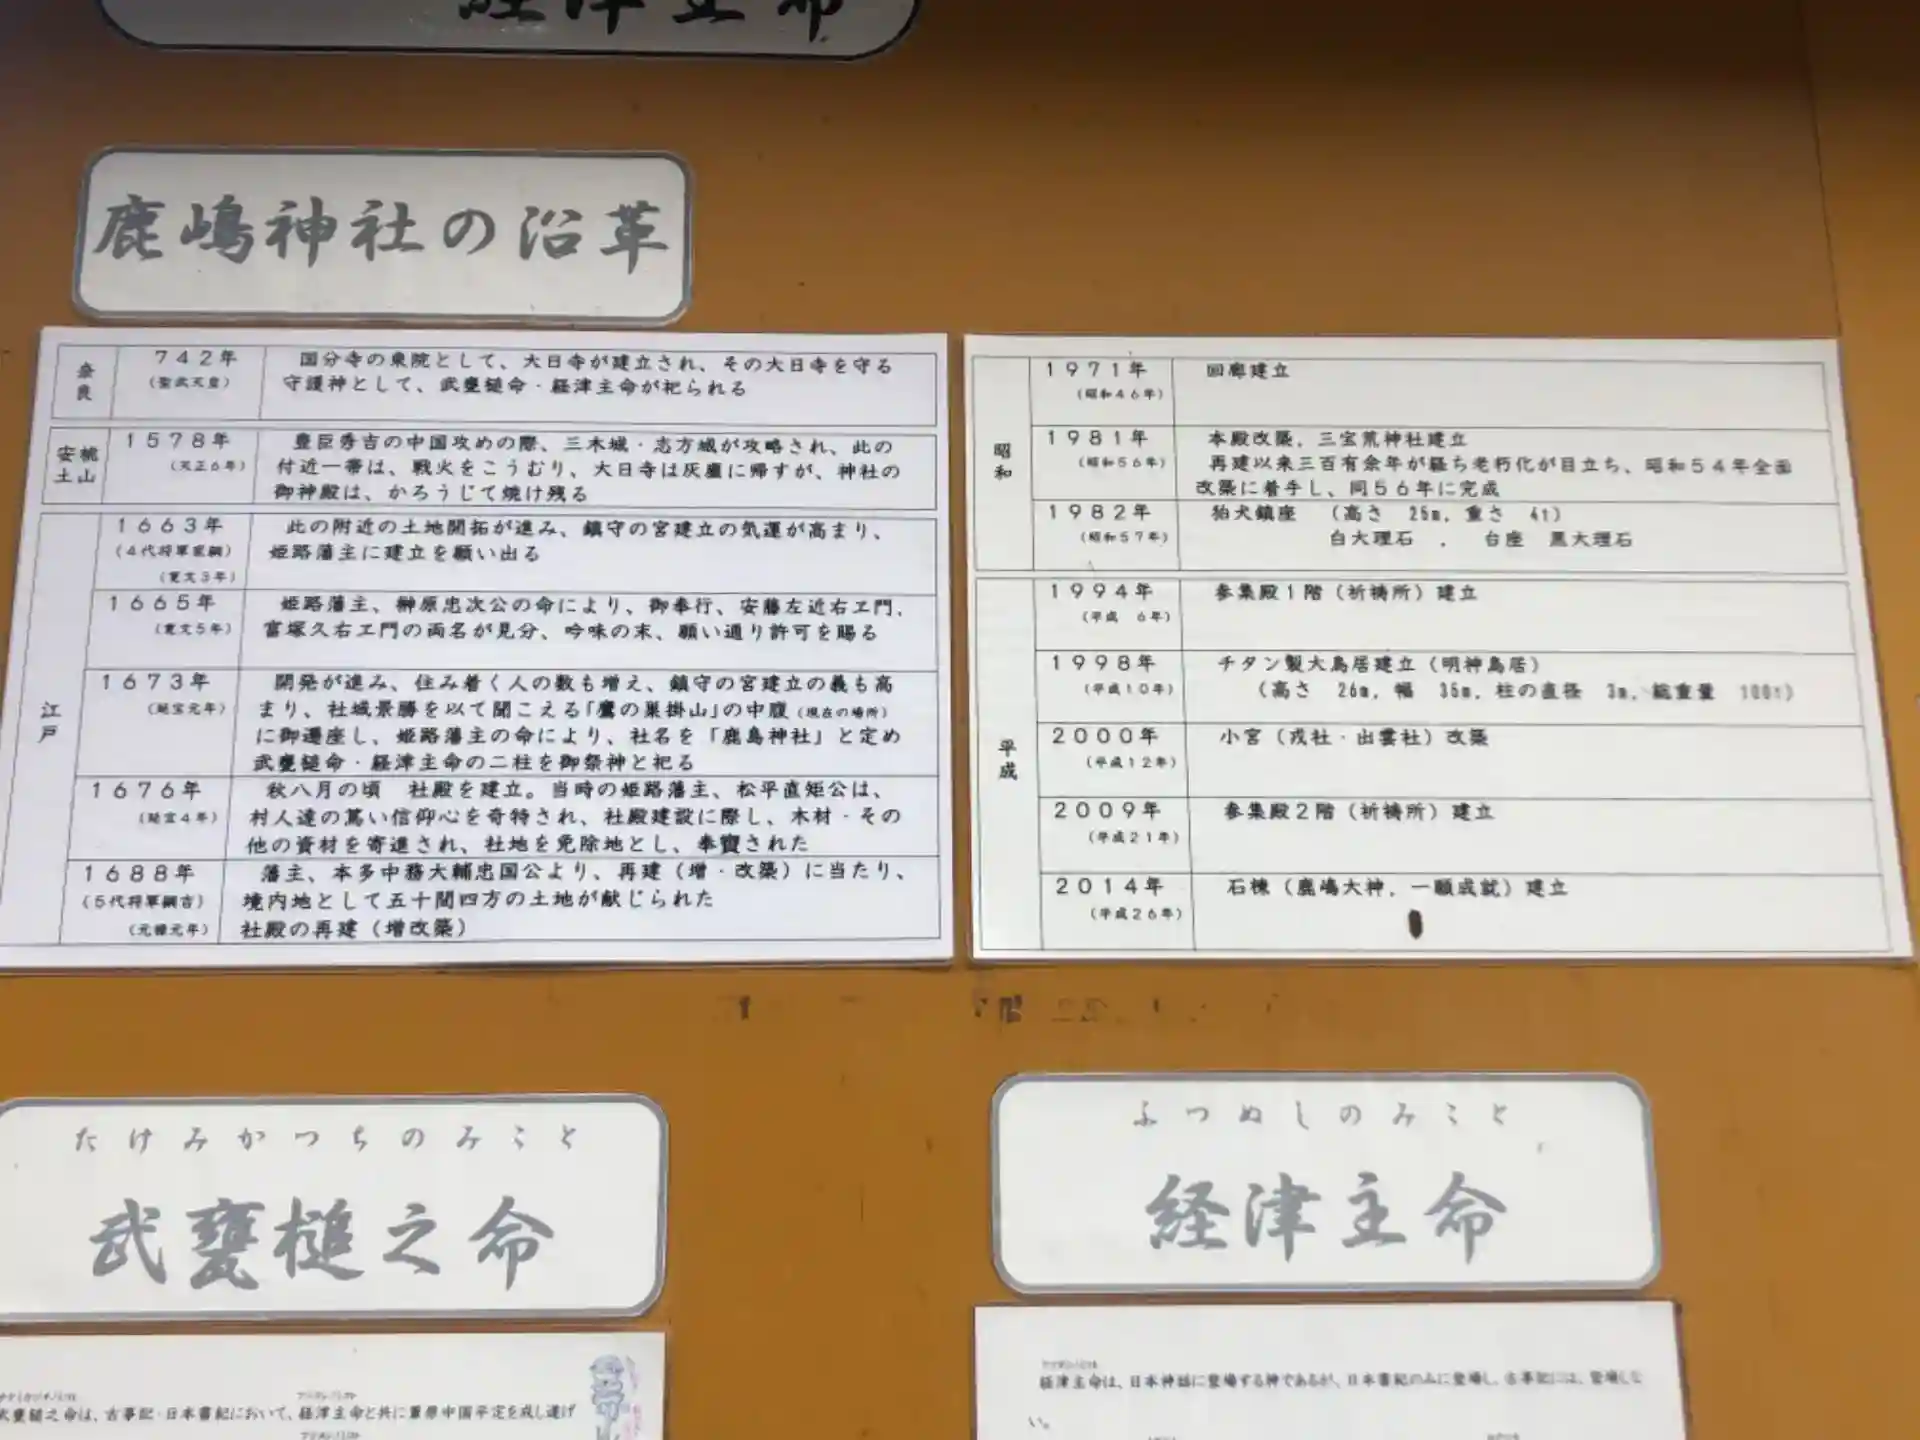 経津主命
鹿嶋神社の沿革
奈良
742年
(聖武天皇)
国分寺の衆院として、大日寺が建立され、その大日寺を守る
守護神として、武甕槌命・経津主命が祀られる
安土桃山
1578年
(天正6年)
豊臣秀吉の中国攻めの際、三木城・志方城が攻略され、此の
付近一帯は、戦火をこうむり、大日寺は灰廬に帰すが、神社の
御神殿は、かろうじて焼け残る
江戸
1663年
(4代将軍家綱)
(寛文3年)
此の附近の土地開拓が進み、鎮守の宮建立の気運が高まり、
姫路藩主に建立を願い出る
1665年
(寛文5年)
姫路藩主、榊原忠次公の命により、御奉行、安藤左近右ヱ門、
富塚久右ヱ門の両名が見分、吟味の末、願い通り許可を賜る
1673年
(延宝元年)
開発が進み、住み着く人の数も増え、鎮守の宮建立の義も高
まり、社城景勝を以て聞こえる「鷹の巣掛山」の中腹(現在の場所)
に御遷座し、姫路藩主の命により、社名を「鹿島神社」と定め
武甕槌命・経津主命の二柱を御祭神と祀る
1676年
(延宝4年)
秋八月の頃 社殿を建立。当時の姫路藩主、松平直矩公は、
村人達の篤い信仰心を奇特され、社殿建設に際し、木材・その
他の資材を寄進され、社地を免除地とし、奉賽された
1688年
(5代将軍綱吉)
(元禄元年)
藩主、本多中務大輔忠国公より、再建(増・改築)に当たり、
境内地として五十間四方の土地が献じられた
社殿の再建(増改築)
昭和
1971年
(昭和46年)
回廊建立
1981年
(昭和56年)
本殿改築、三宝荒神社建立
再建以来三百有余年が経ち老朽化が目立ち、昭和54年全面
改築に着手し、同56年に完成
1982年
(昭和57年)
狛犬鎮座 (高さ 25m、重さ 4t)
白大理石 、 台座 黒大理石
平成
1994年
(平成 6年)
参集殿1階(祈祷所)建立
1998年
(平成10年)
チタン製大鳥居建立(明神鳥居)
(高さ 26m、幅 35m、柱の直径 3m、総重量 100t)
2000年
(平成12年)
小宮(戎社・出雲社)改築
2009年
(平成21年)
参集殿2階(祈祷所)建立
2014年
(平成26年)
石棟(鹿嶋大神、一願成就)建立
たけみかつちのみこと
武甕槌之命
ふつぬしのみこと
経津主命
武甕槌之命は、古事記・日本書紀において、経津主命と共に葦原中国平定を成し遂げ
経津主命は、日本神話に登場する神であるが、日本書紀のみに登場し、古事記には、登場しな
い。